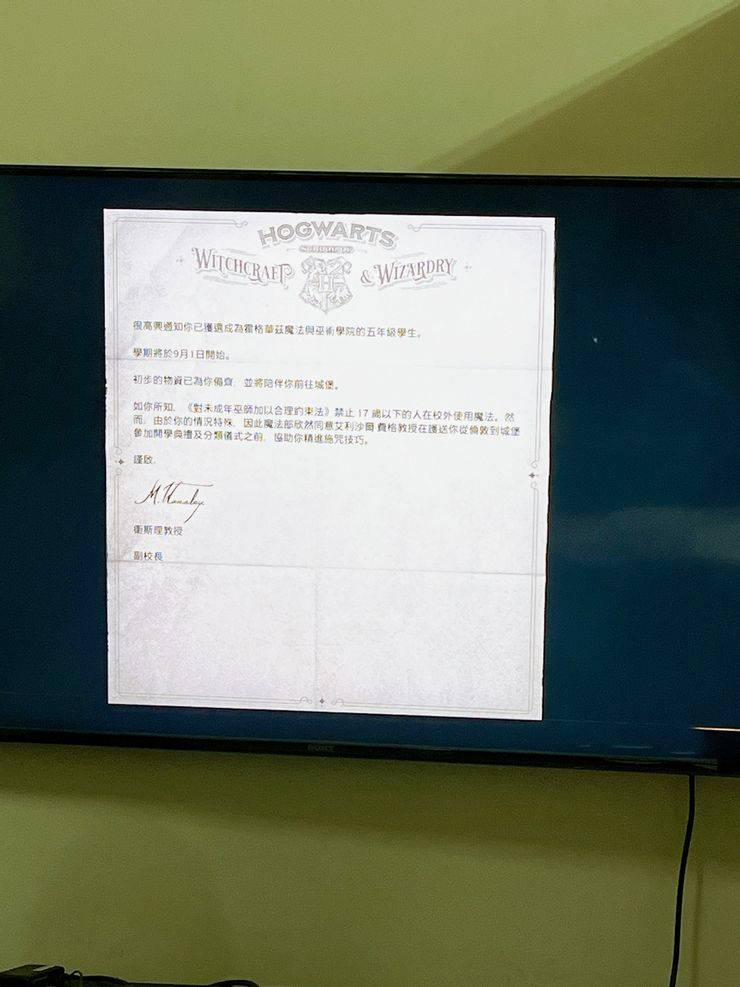 HOGWARTS
SCHOOL OF
WITCHCRAFT & WIZARDRY
H
很高興通知你已獲選成為霍格華茲魔法與巫術學院的五年級學生。
學期將於9月1日開始。
初步的物資已為你備齊，並將陪伴你前往城堡。
如你所知，《對未成年巫師加以合理約束法》禁止 17 歲以下的人在校外使用魔法。然
而，由於你的情況特殊，因此魔法部欣然同意艾利沙爾 費格教授在護送你從倫敦到城堡
參加開學典禮及分類儀式之前，協助你精進施咒技巧。
謹啟，
M. Weasley
衛斯理教授
副校長
SONY